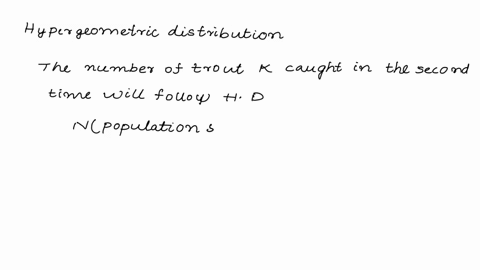 Hypergeometric distribution
The number of trout K caught in the second
time will follow H.D
N(population s